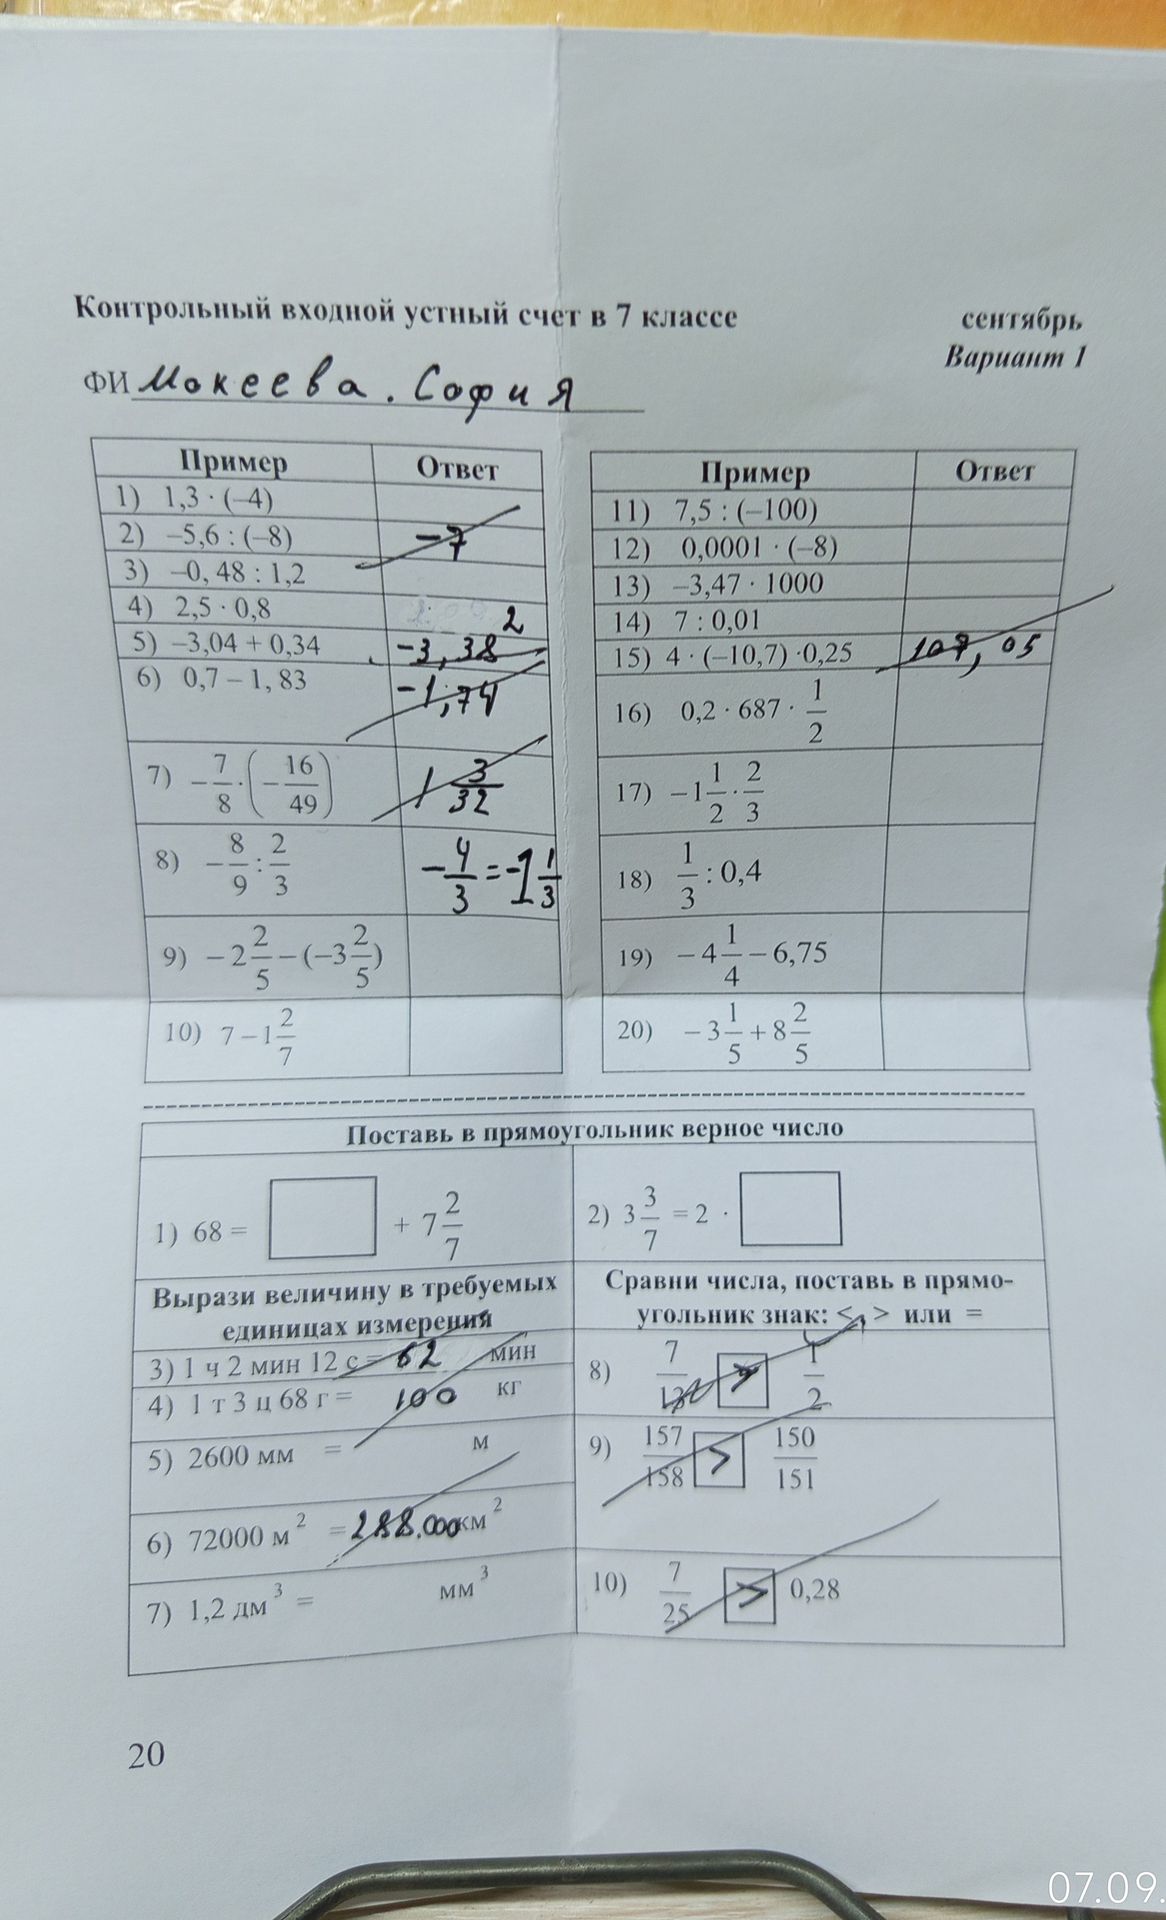 Контрольный входной устный счет в 7 классе сентябрь
Вариант 1
ФИ Мокеева. София
Пример Ответ
1) 1,3 · (–4)
2) –5,6 : (–8) –7
3) –0, 48 : 1,2
4) 2,5 · 0,8 2
5) –3,04 + 0,34 –3,38
6) 0,7 – 1, 83 –1,74
7) –7/8 · (–16/49) 1 3/32
8) –8/9 : 2/3 –4/3 = –1 1/3
9) –2 2/5 – (–3 2/5)
10) 7 – 1 2/7
Пример Ответ
11) 7,5 : (–100)
12) 0,0001 · (–8)
13) –3,47 · 1000
14) 7 : 0,01
15) 4 · (–10,7) ·0,25 107, 05
16) 0,2 · 687 · 1/2
17) –1 1/2 · 2/3
18) 1/3 : 0,4
19) –4 1/4 – 6,75
20) –3 1/5 + 8 2/5
Поставь в прямоугольник верное число
1) 68 = + 7 2/7
2) 3 3/7 = 2 ·
Вырази величину в требуемых
единицах измерения
3) 1 ч 2 мин 12 с = 62 мин
4) 1 т 3 ц 68 г = 100 кг
5) 2600 мм = м
6) 72000 м² = 288.000 км²
7) 1,2 дм³ = мм³
Сравни числа, поставь в прямо-
угольник знак: <, > или =
8) > 1/2
9) 157/158 > 150/151
10) 7/25 > 0,28
20
07.09.